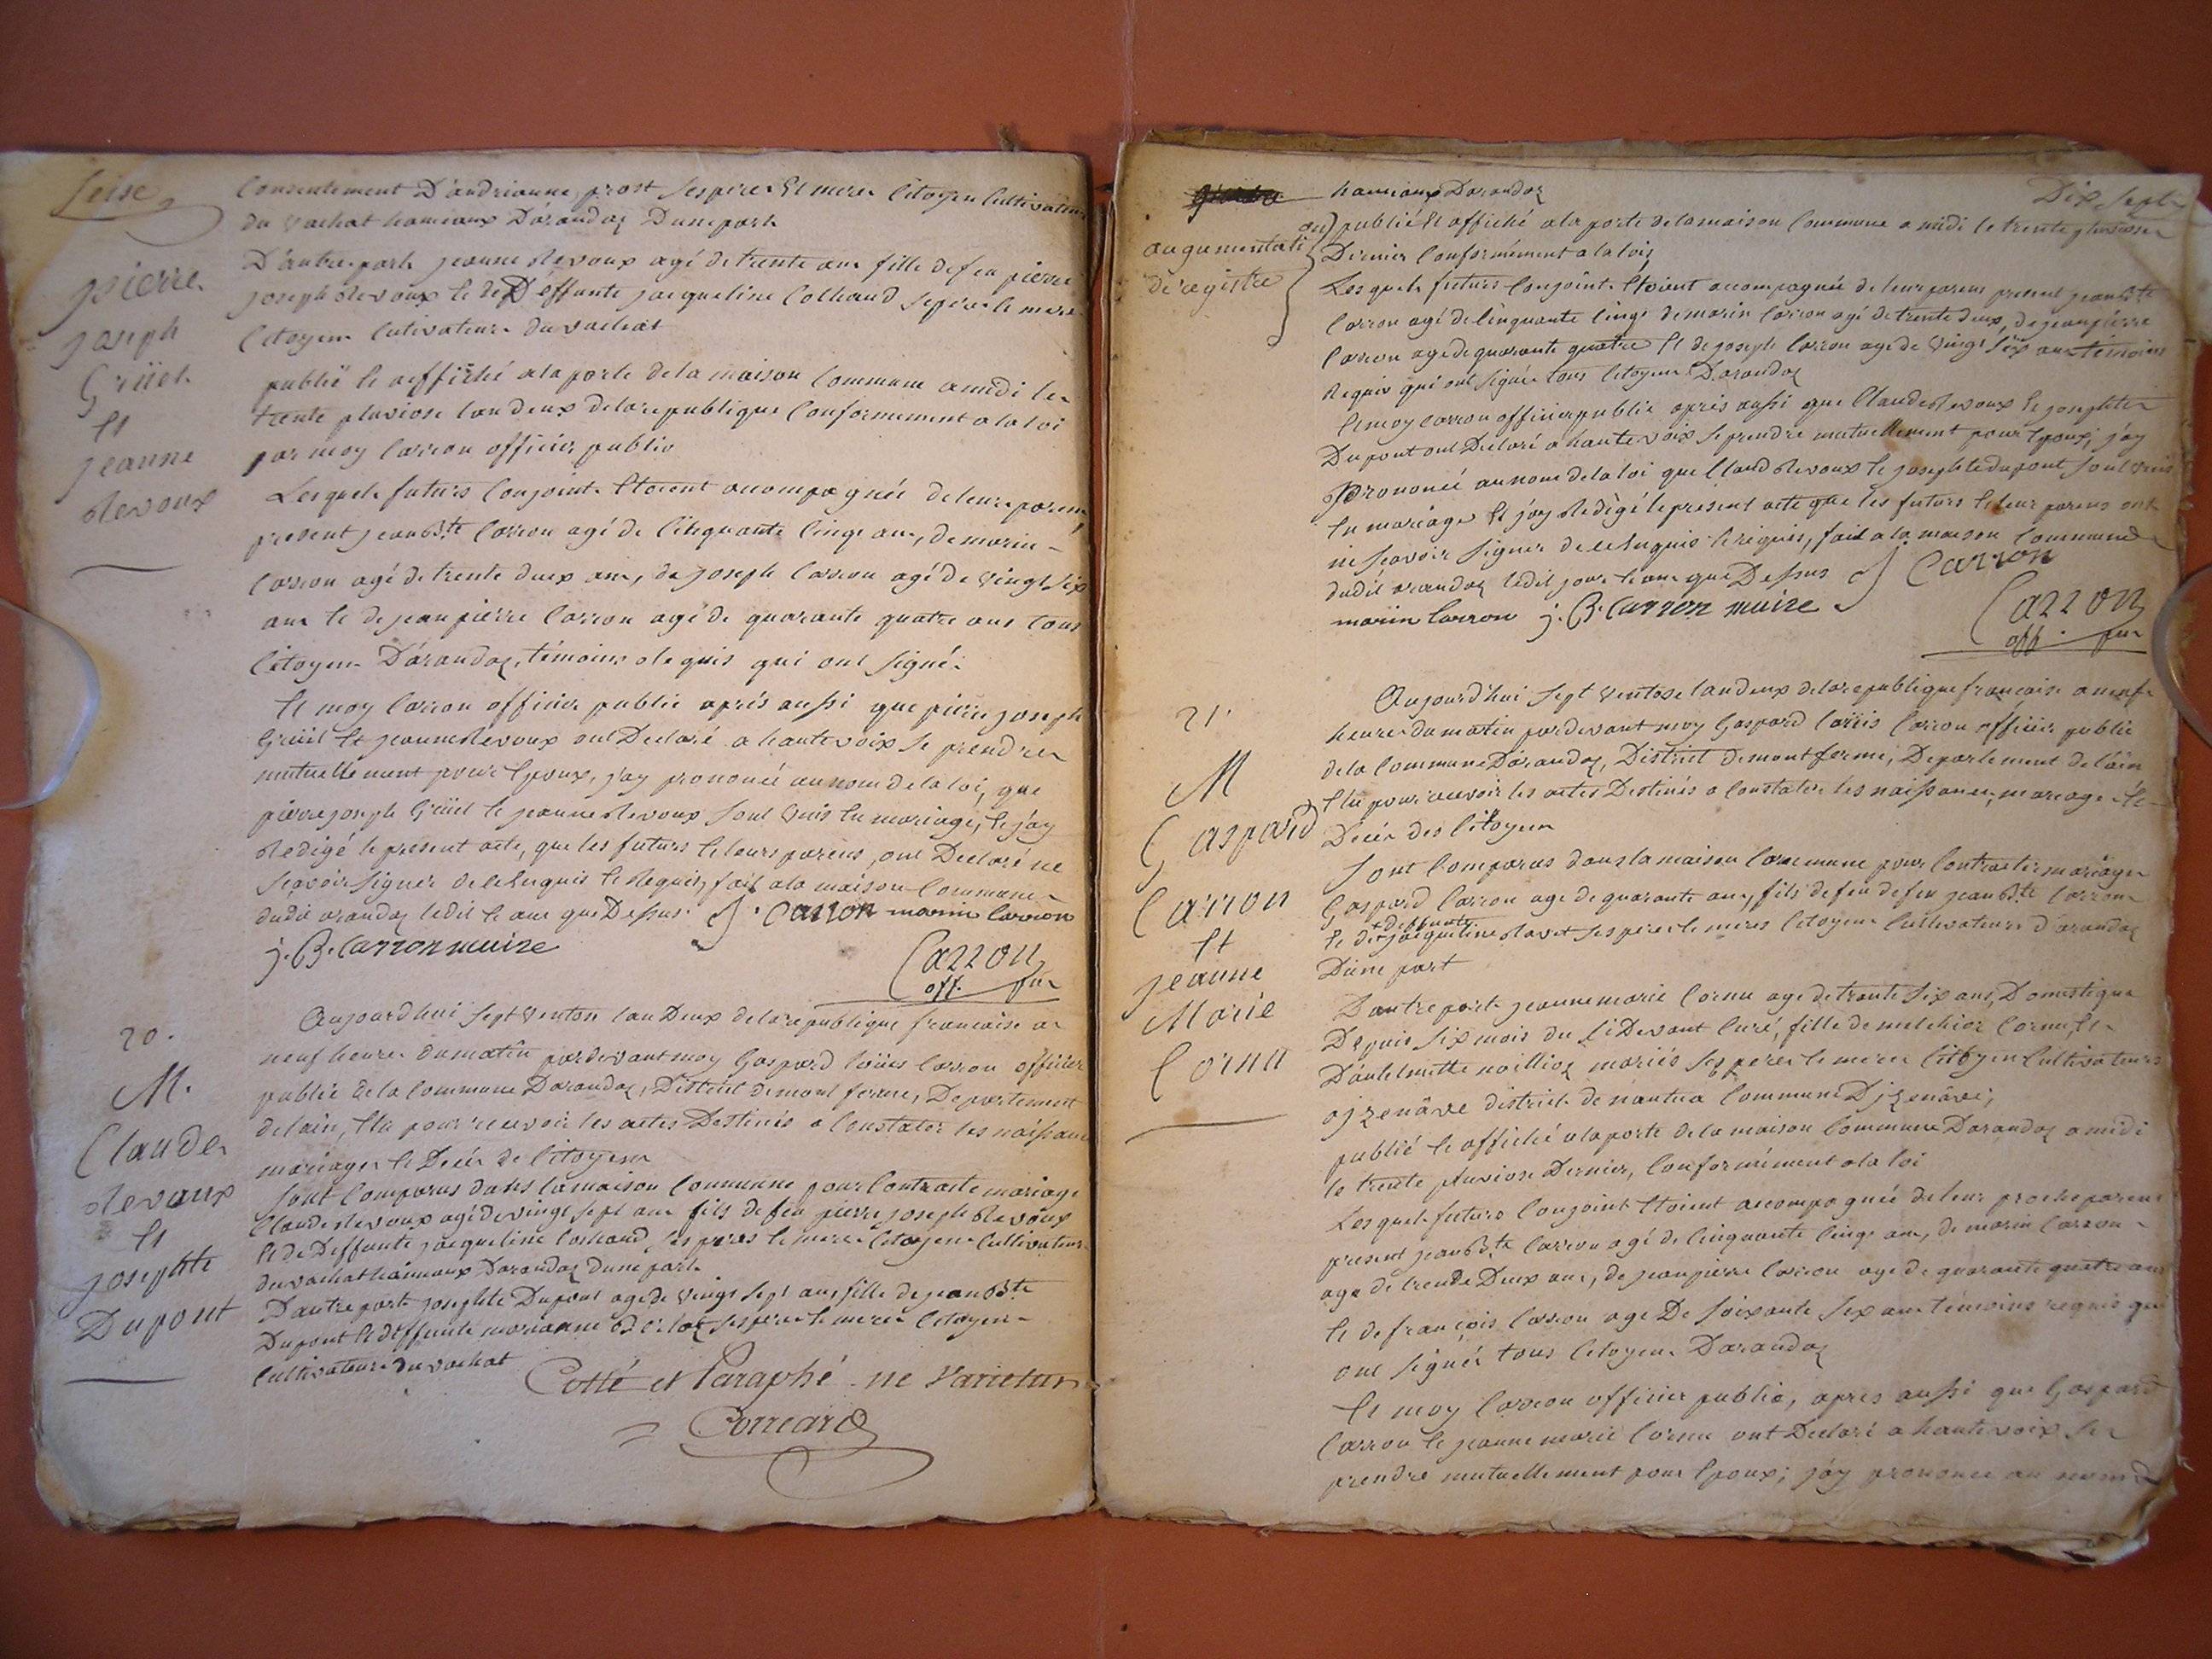 Seise
pierre
joseph
Grüel
Et
jeanne
devoux
Consentement D'andrianne prost ses pere Et mere Citoyen Cultivateur
du vachat hameaux D'arandaz Dune part
D'autre part jeanne devoux agé de trente ans fille de feu pierre
joseph devoux Et de Deffunte jacqueline Cochand ses pere Et mere
Citoyens Cultivateurs du vachat
publié Et affiché a la porte de la maison Commune a midi le
trente pluviose l'an deux de la republique Conformement a la loi
par moy Carron officier public
Les quels futurs Conjoints Etoient acompagnés de leurs parens
present jean Bte Carron agé de Cinquante Cinq ans, de marin
Carron agé de trente deux ans, de joseph Carron agé de vingt six
ans Et de jean pierre Carron agé de quarante quatre ans tous
Citoyens D'arandaz, témoins requis qui ont signé.
Et moy Carron officier public aprés aussi que pierre joseph
Grüel Et jeanne devoux ont Declaré a haute voix se prendre
mutuellement pour Epoux, j'ay prononcé au nom de la loi, que
pierre joseph Grüel Et jeanne devoux sont unis En mariage, Et j'ay
Redigé le present acte, que les futurs Et leurs parens ont Declaré ne
sçavoir signer de ce Enquis Et Requis, fait a la maison Commune
dudit arandaz ledit Et ans que Dessus. J. Carron marin Carron
j. B. Carron maire
Carron
off. pur
20.
M.
Claude
devoux
Et
josephte
Dupont
Aujourdhui sept ventose l'an Deux de la republique francaise a
neuf heures du matin pardevant moy Gaspard Loüis Carron officier
public de la Commune Darandaz, District de mont ferme, Departement
de lain, Elu pour recevoir les actes Destinés a Constater les naissances
mariages Et Decés de Citoyens
sont Comparus dans la maison Commune pour Contracte mariage
Claude devoux agé de vingt sept ans fils de feu pierre joseph devoux
Et de Deffunte jacqueline Cochand, ses peres Et mere Citoyens Cultivateurs
du vachat hameaux Darandaz dune part
Dautre part josephte Dupont agé de vingt sept ans, fille de jean Bte
Dupont Et deffunte marianne ses pere Et mere Citoyens
Cultivateurs du vachat
Cotté et Paraphé ne Varietur
Correard
Dix sept
augumentati
on
de registre
hameaux Darandaz
publié Et affiché a la porte de la maison Commune a midi le trente pluviose
Dernier Conformément a la loix
Les quels futurs Conjoints Etoient accompagnés de leurs parens present jean Bte
Carron agé de Cinquante Cinq de marin Carron agé de trente deux, de jean pierre
Carron agé de quarante quatre Et de joseph Carron age de vingt six ans témoins
Requis qui ont signés tous Citoyens D'arandaz
Et moy Carron officier public aprés aussi que Claude devoux Et josephte
Dupont ont Declaré a haute voix se prendre mutuellement pour Epoux, j'ay
Prononcé au nom de la loi que Claud devoux Et josephte dupont sont unis
En mariage Et j'ay Redigé le present acte que les futurs Et leur parens ont
ne sçavoir signer de ce Enquis Et requis, fait a la maison Commune
dudit arandaz ledit jour Et ans que Dessus J. Carron
marin Carron j. B. Carron maire
Carron
off. pur
21.
M
Gaspard
Carron
Et
jeanne
Marie
Cornu
Aujourd'hui sept ventose l'an deux de la republique francaise a neuf
heures du matin pardevant moy Gaspard Loüis Carron officier public
de la Commune D'arandaz, District de mont ferme, Departement de l'ain
Elu pour recevoir les actes Destinés a Constater les naissances, mariage Et
Decés des Citoyens
Sont Comparus dans la maison Commune pour Contracter mariage
Gaspard Carron age de quarante ans, fils de feu de feu jean Bte Carron
Et de + deffunte jacqueline ses pere Et meres Citoyens Cultivateurs D'arandaz
Dune part
Dautre part jeanne marie Cornu age de trente six ans, Domestique
Depuis six mois du Ci Devant Curé, fille de melchior Cornu, Et
mariés ses pere Et mere Citoyen Cultivateurs
ajzenâve district de nantua Commune Djzenâve,
publié Et affiché a la porte de la maison Commune Darandaz a midi
le trente pluviose Dernier, Conformément a la loi
Les quels futurs Conjoint Etoient accompagnés de leur proche parens
present jean Bte Carron agé de Cinquante Cinq ans, de marin Carron
age de trente Deux ans, de jean pierre Carron age de quarante quatre ans
Et de françois Carron age De soixante six ans témoins requis qui
ont signés tous Citoyens Darandaz
Et moy Carron officier public, apres aussi que Gaspard
Carron Et jeanne marie Cornu ont Declaré a haute voix se
prendre mutuellement pour Epoux; j'ay prononcé au nom d